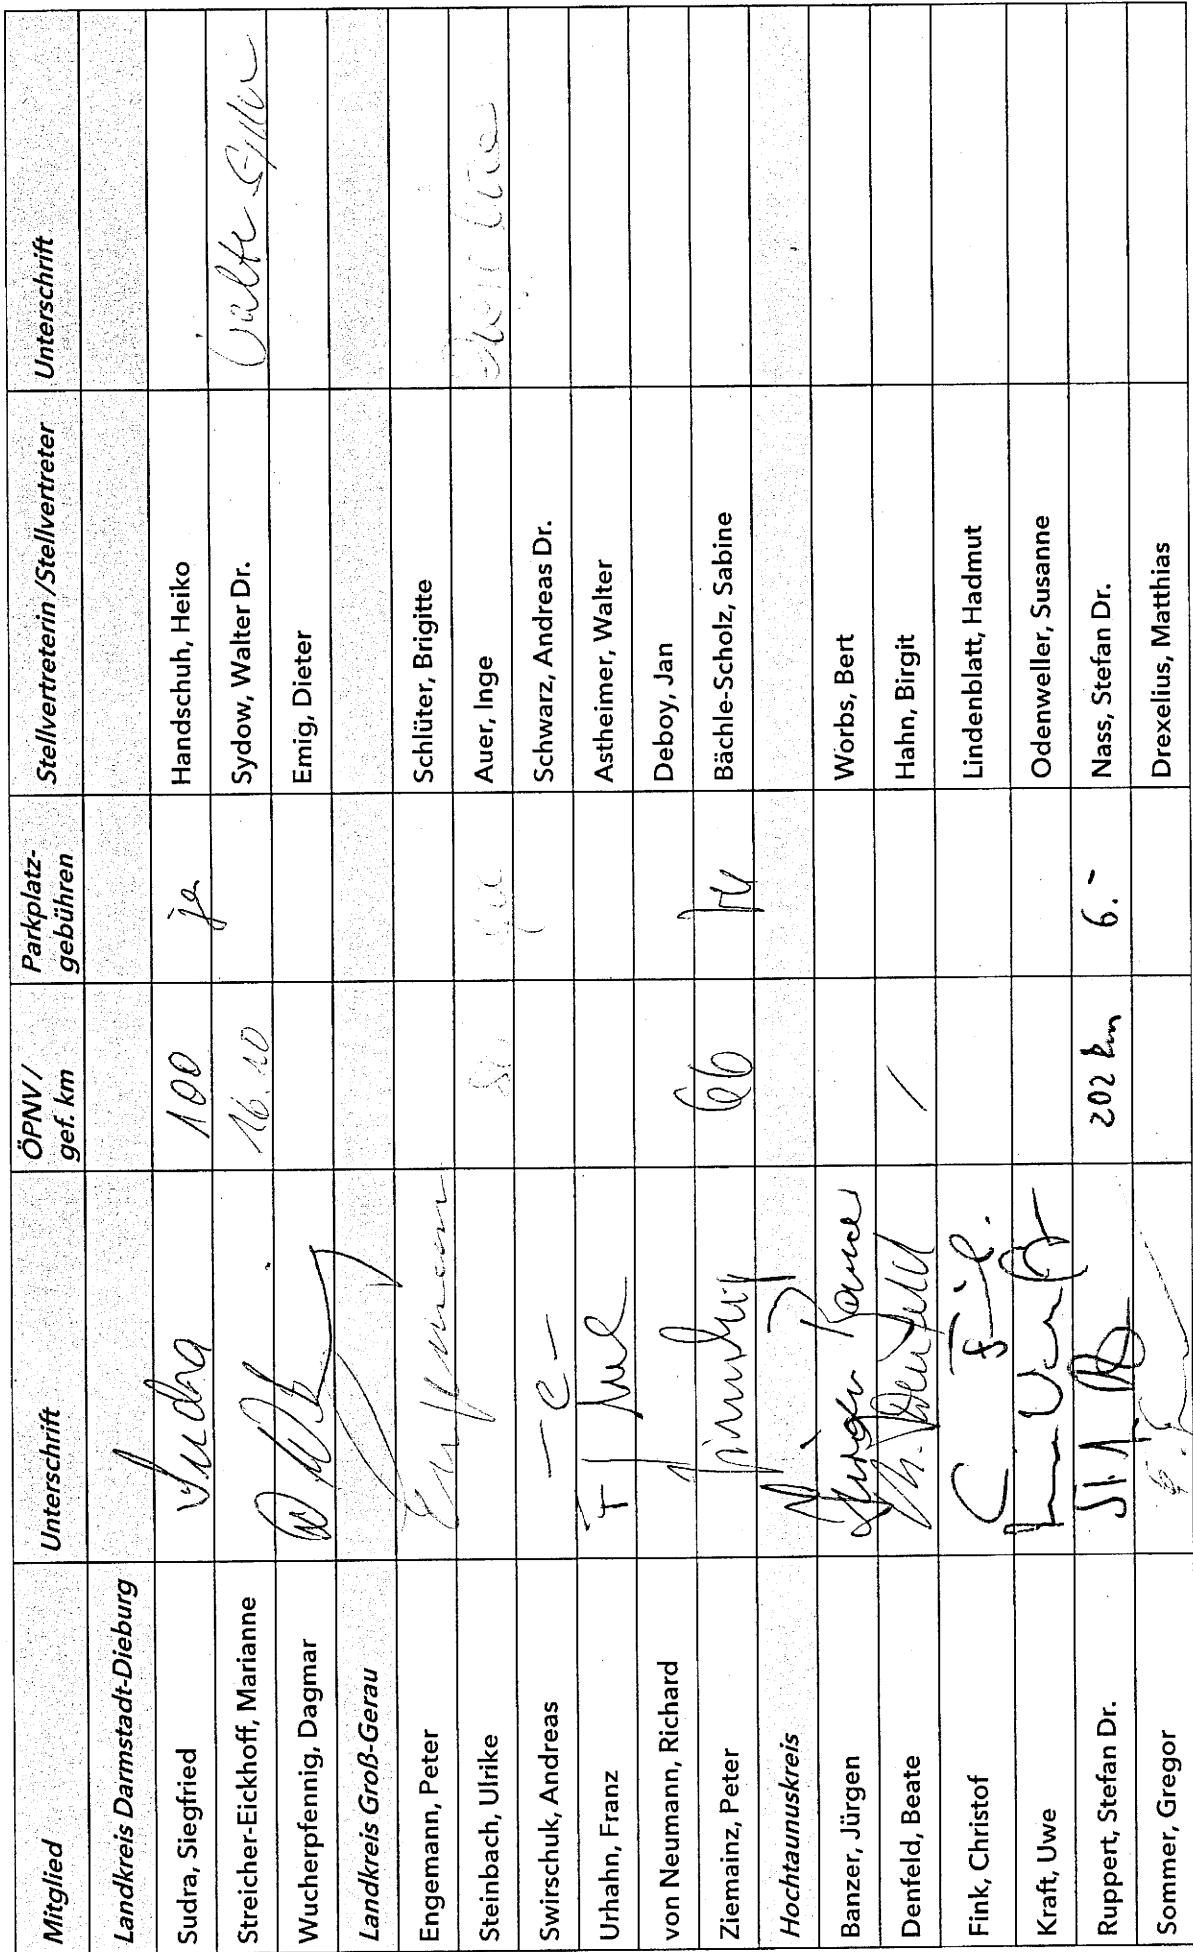 Mitglied Unterschrift ÖPNV / gef. km Parkplatz-gebühren Stellvertreterin /Stellvertreter Unterschrift
Landkreis Darmstadt-Dieburg
Sudra, Siegfried Sudra 100 ja Handschuh, Heiko
Streicher-Eickhoff, Marianne 16.10 Sydow, Walter Dr.
Wucherpfennig, Dagmar Emig, Dieter
Landkreis Groß-Gerau
Engemann, Peter Schlüter, Brigitte
Steinbach, Ulrike Auer, Inge
Swirschuk, Andreas Schwarz, Andreas Dr.
Urhahn, Franz Astheimer, Walter
von Neumann, Richard Deboy, Jan
Ziemainz, Peter 66 Bächle-Scholz, Sabine
Hochtaunuskreis
Banzer, Jürgen Jürgen Banzer Worbs, Bert
Denfeld, Beate / Hahn, Birgit
Fink, Christof Lindenblatt, Hadmut
Kraft, Uwe Odenweller, Susanne
Ruppert, Stefan Dr. 202 km 6.- Nass, Stefan Dr.
Sommer, Gregor Drexelius, Matthias